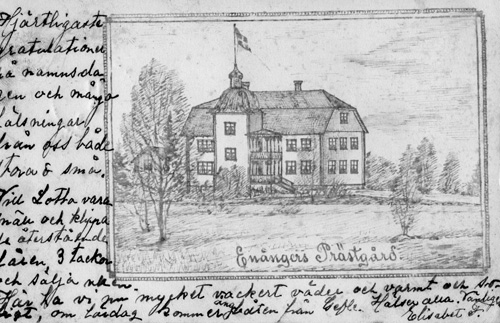 Hjärtligaste
gratulationer
på namnsda
gen och många
hälsningar
från oss både
stora & små.
Till Lotta vara
och klippa
återstående
fåren, 3 tackor
och sälja
Här ha vi nu mycket vackert väder och varmt och
om Lördag kommer ångbåten från Gefle. Hälsa alla.
Elisabet
Enångers Prästgård.